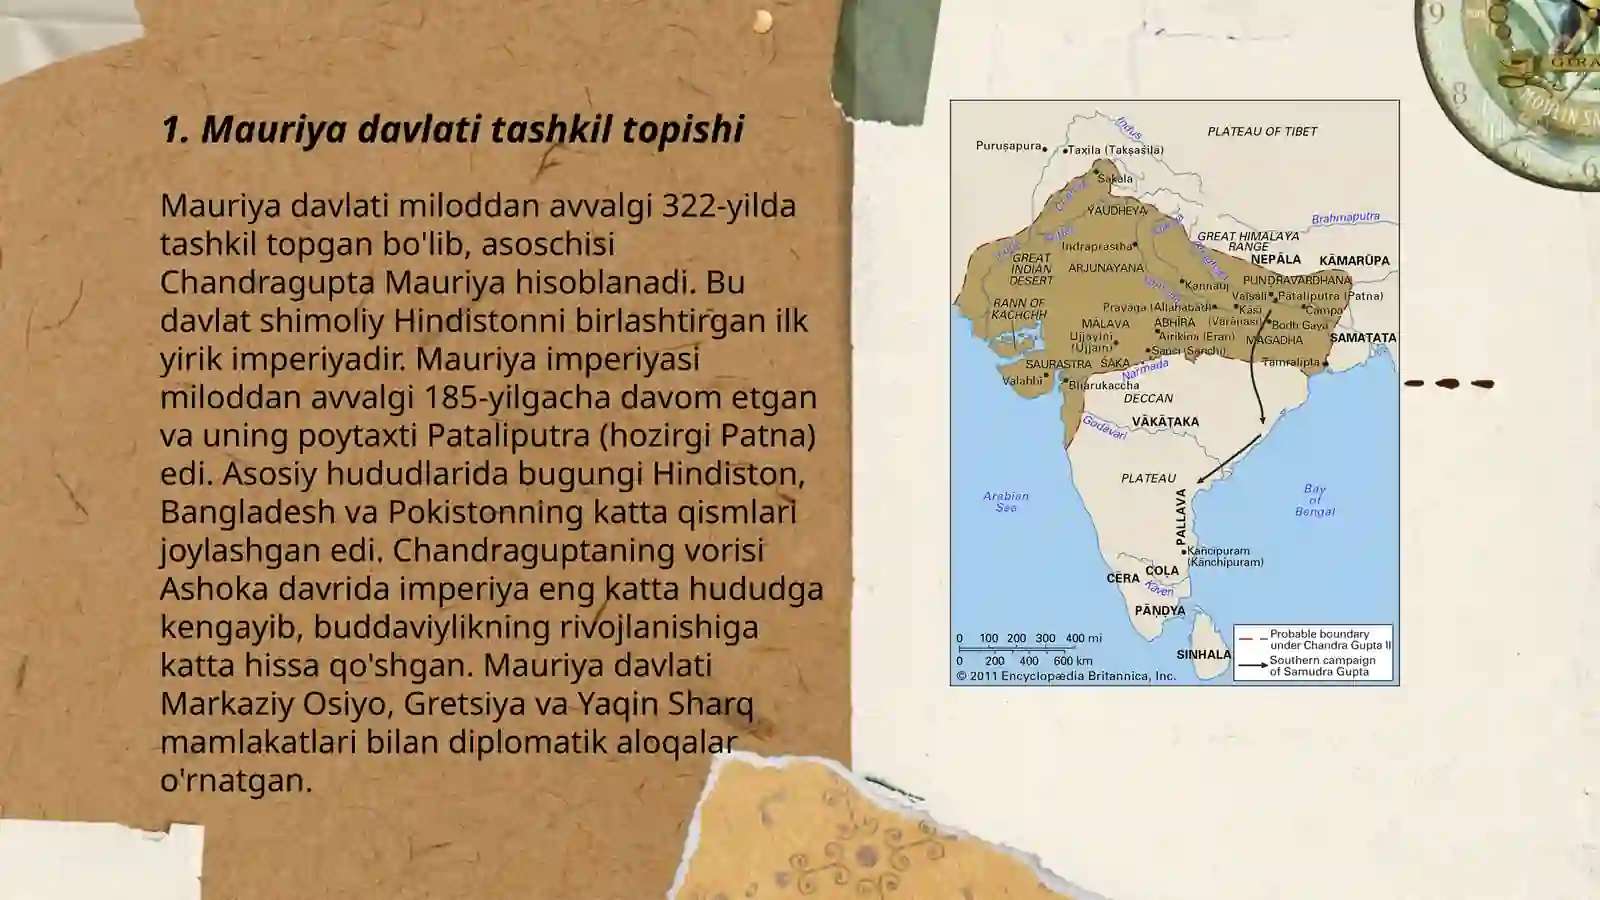 1. Mauriya davlati tashkil topishi
Mauriya davlati miloddan avvalgi 322-yilda
tashkil topgan bo'lib, asoschisi
Chandragupta Mauriya hisoblanadi. Bu
davlat shimoliy Hindistonni birlashtirgan ilk
yirik imperiyadir. Mauriya imperiyasi
miloddan avvalgi 185-yilgacha davom etgan
va uning poytaxti Pataliputra (hozirgi Patna)
edi. Asosiy hududlarida bugungi Hindiston,
Bangladesh va Pokistonning katta qismlari
joylashgan edi. Chandraguptaning vorisi
Ashoka davrida imperiya eng katta hududga
kengayib, buddaviylikning rivojlanishiga
katta hissa qo'shgan. Mauriya davlati
Markaziy Osiyo, Gretsiya va Yaqin Sharq
mamlakatlari bilan diplomatik aloqalar
o'rnatgan.
PLATEAU OF TIBET
Indus
Puruṣapura
Taxila (Takṣaśilā)
Śākala
YAUDHEYA
Brahmaputra
Indraprastha
GREAT HIMALAYA
RANGE
NEPĀLA
KĀMARŪPA
GREAT
INDIAN
DESERT
ARJUNAYANA
PUṆḌRAVARDHANA
Kannauj
Vaiśālī
Pāṭaliputra (Patna)
RANN OF
KACHCHH
Prayāga (Allahabad)
Kāśī
(Vārāṇasī)
Campā
MĀLAVA
ĀBHĪRA
Bodh Gayā
Ujjayinī
(Ujjain)
Airikina (Eran)
MAGADHA
SAMATATA
Sāñcī (Sanchi)
SAURASTRA
ŚAKA
Tāmralipta
Narmada
Valabhī
Bharukaccha
DECCAN
VĀKĀṬAKA
Godāvari
PLATEAU
Arabian
Sea
Bay
of
Bengal
PALLAVA
Kāñcipuram
(Kānchipuram)
COLA
CĒRA
Kāveri
PĀṆḌYA
SINHALA
0 100 200 300 400 mi
0 200 400 600 km
© 2011 Encyclopædia Britannica, Inc.
Probable boundary
under Chandra Gupta II
Southern campaign
of Samudra Gupta
9
8
6
GIRA
MOULIN